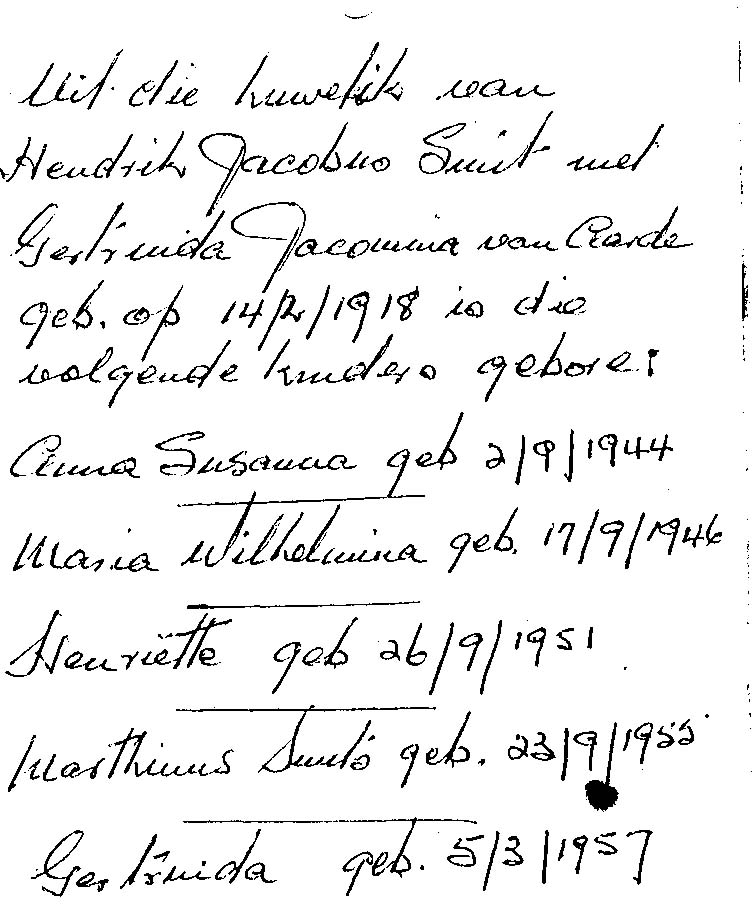 Uit die huwelik van
Hendrik Jacobus Smit met
Gertruida Jacomina van Aarde
geb. op 14/2/1918 is die
volgende kinders gebore:
Anna Susanna geb 2/9/1944
Maria Wilhelmina geb. 17/9/1946
Henriëtte geb 26/9/1951
Marthinus Smits geb. 23/9/1955
Gertruida geb. 5/3/1957